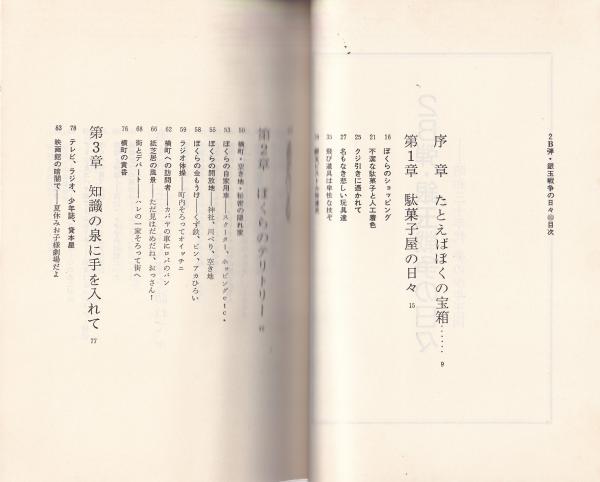 2B弾・銀玉戦争の日々●目次
序　章　たとえばぼくの宝箱……9
第1章　駄菓子屋の日々　15
16　ぼくらのショッピング
21　不潔な駄菓子と人工着色
25　クジ引きに憑かれて
27　名もなき悲しい玩具達
35　飛び道具は卑怯な技ぞ
第2章　ぼくらのテリトリー
50　横町・空き地・秘密の隠れ家
53　ぼくらの自家用車──スクーター、ホッピングetc・
55　ぼくらの開放地──神社、川べり、空き地
58　ぼくらの金もうけ──くず鉄、ビン、アカひろい
59　ラジオ体操──町内そろってオイッチニ
62　横町への訪問者──カバヤの車にロバのパン
66　紙芝居の風景──ただ見はだめだね、おっさん！
68　街とデパート──ハレの一家そろって街へ
76　横町の黄昏
第3章　知識の泉に手を入れて　77
78　テレビ、ラジオ、少年誌、貸本屋
83　映画館の暗闇で──夏休みお子様劇場だよ